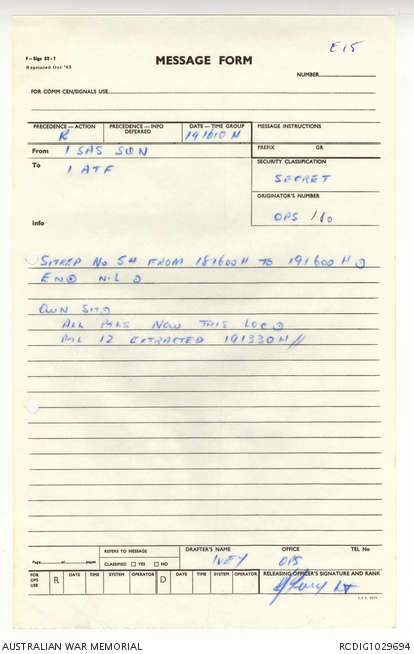 E15
F-Sigs 52-1
Reprinted Oct '65
MESSAGE FORM
NUMBER
FOR COMM CEN/SIGNALS USE
PRECEDENCE—ACTION
R
PRECEDENCE—INFO
DEFERRED
DATE—TIME GROUP
191610 H
MESSAGE INSTRUCTIONS
From 1 SAS SQN
PREFIX GR
To 1 ATF
SECURITY CLASSIFICATION
SECRET
ORIGINATOR'S NUMBER
OPS 180
Info
SITREP No 54 FROM 181600H TO 191600H
EN NIL
OWN SIT
ALL PALS NOW THIS LOC
PAL 12 EXTRACTED 191330H //
Page of pages
REFERS TO MESSAGE
CLASSIFIED YES NO
DRAFTER'S NAME
IVEY
OFFICE
OPS
TEL No
FOR OPS USE
R DATE TIME SYSTEM OPERATOR D DATE TIME SYSTEM OPERATOR
RELEASING OFFICER'S SIGNATURE AND RANK
Lt
AUSTRALIAN WAR MEMORIAL
RCDIG1029694